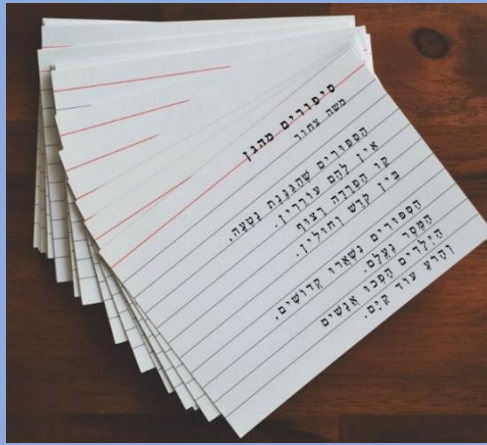 סיפורים מהגן
משה צחור
הַסִּפּוּרִים שֶׁהַגַּנֶּנֶת נָטְעָה,
אֵין לָהֶם עוֹרְרִין.
קַו הַפְרָדָה רָצוּף
בֵּין קֹדֶשׁ וְחוֹלִין.
הַסִּפּוּרִים נִשְׁאֲרוּ קְדוֹשִׁים,
הַמֶּסֶר נֶעְלַם.
הַיְלָדִים הָפְכוּ אֲנָשִׁים
וְהָרַע עוֹד קַיָּם.